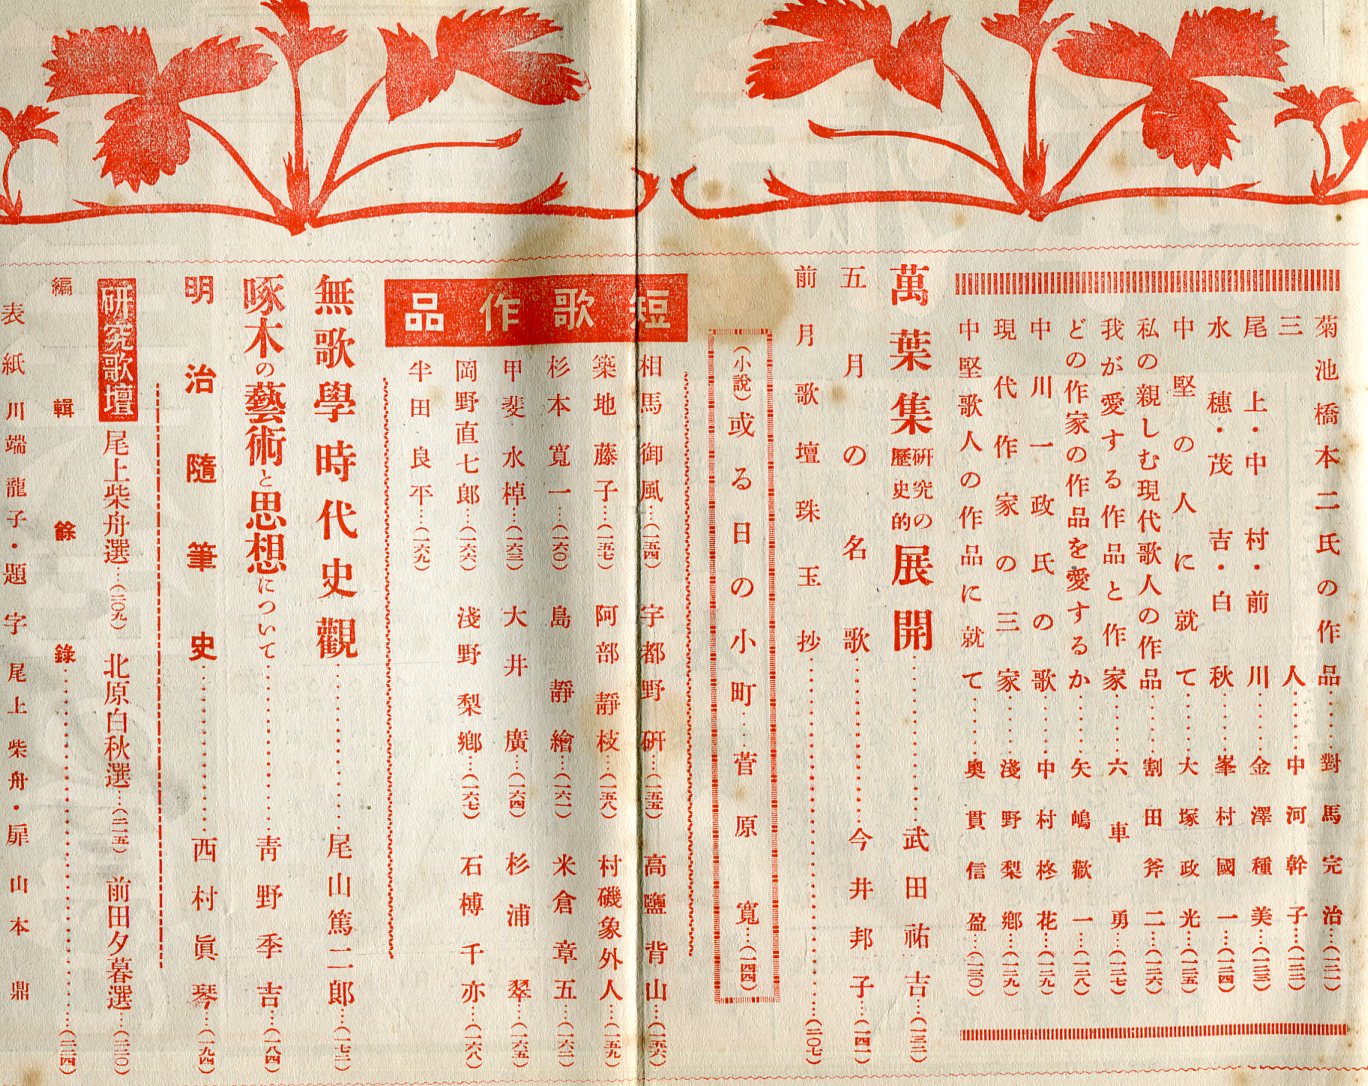 菊池橋本二氏の作品…對馬完治…(一二一)
三人…中河幹子…(一二二)
尾上・中村・前川…金澤種美…(一二三)
水穗・茂吉・白秋…峯村國一…(一二四)
中堅の人に就て…大塚政光…(一二五)
私の親しむ現代歌人の作品…割田斧二…(一二六)
我が愛する作品と作家…六車勇…(一二七)
どの作家の作品を愛するか…矢嶋歡一…(一二八)
中川一政氏の歌…中村柊花…(一二九)
現代作家の三家…淺野梨鄕…(一二九)
中堅歌人の作品に就て…奥貫信盈…(一三〇)
萬葉集研究の歷史的展開…武田祐吉…(一三二)
五月の名歌…今井邦子…(一四一)
前月歌壇珠玉抄…(二〇七)
(小說)或る日の小町…菅原寬…(一四四)
短歌作品
相馬御風…(一五四) 宇都野研…(一五五) 高鹽背山…(一五六)
築地藤子…(一五七) 阿部靜枝…(一五八) 村磯象外人…(一五九)
杉本寬一…(一六〇) 島靜繪…(一六一) 米倉章五…(一六二)
甲斐水棹…(一六三) 大井廣…(一六四) 杉浦翠…(一六五)
岡野直七郎…(一六六) 淺野梨鄕…(一六七) 石榑千亦…(一六八)
半田良平…(一六九)
無歌學時代史觀…尾山篤二郎…(一七二)
啄木の藝術と思想について…靑野季吉…(一八四)
明治隨筆史…西村眞琴…(一九四)
研究歌壇 尾上柴舟選…(二〇九) 北原白秋選…(二一五) 前田夕暮選…(二二〇)
編輯餘錄…(二二四)
表紙 川端龍子・題字 尾上柴舟・扉 山本鼎